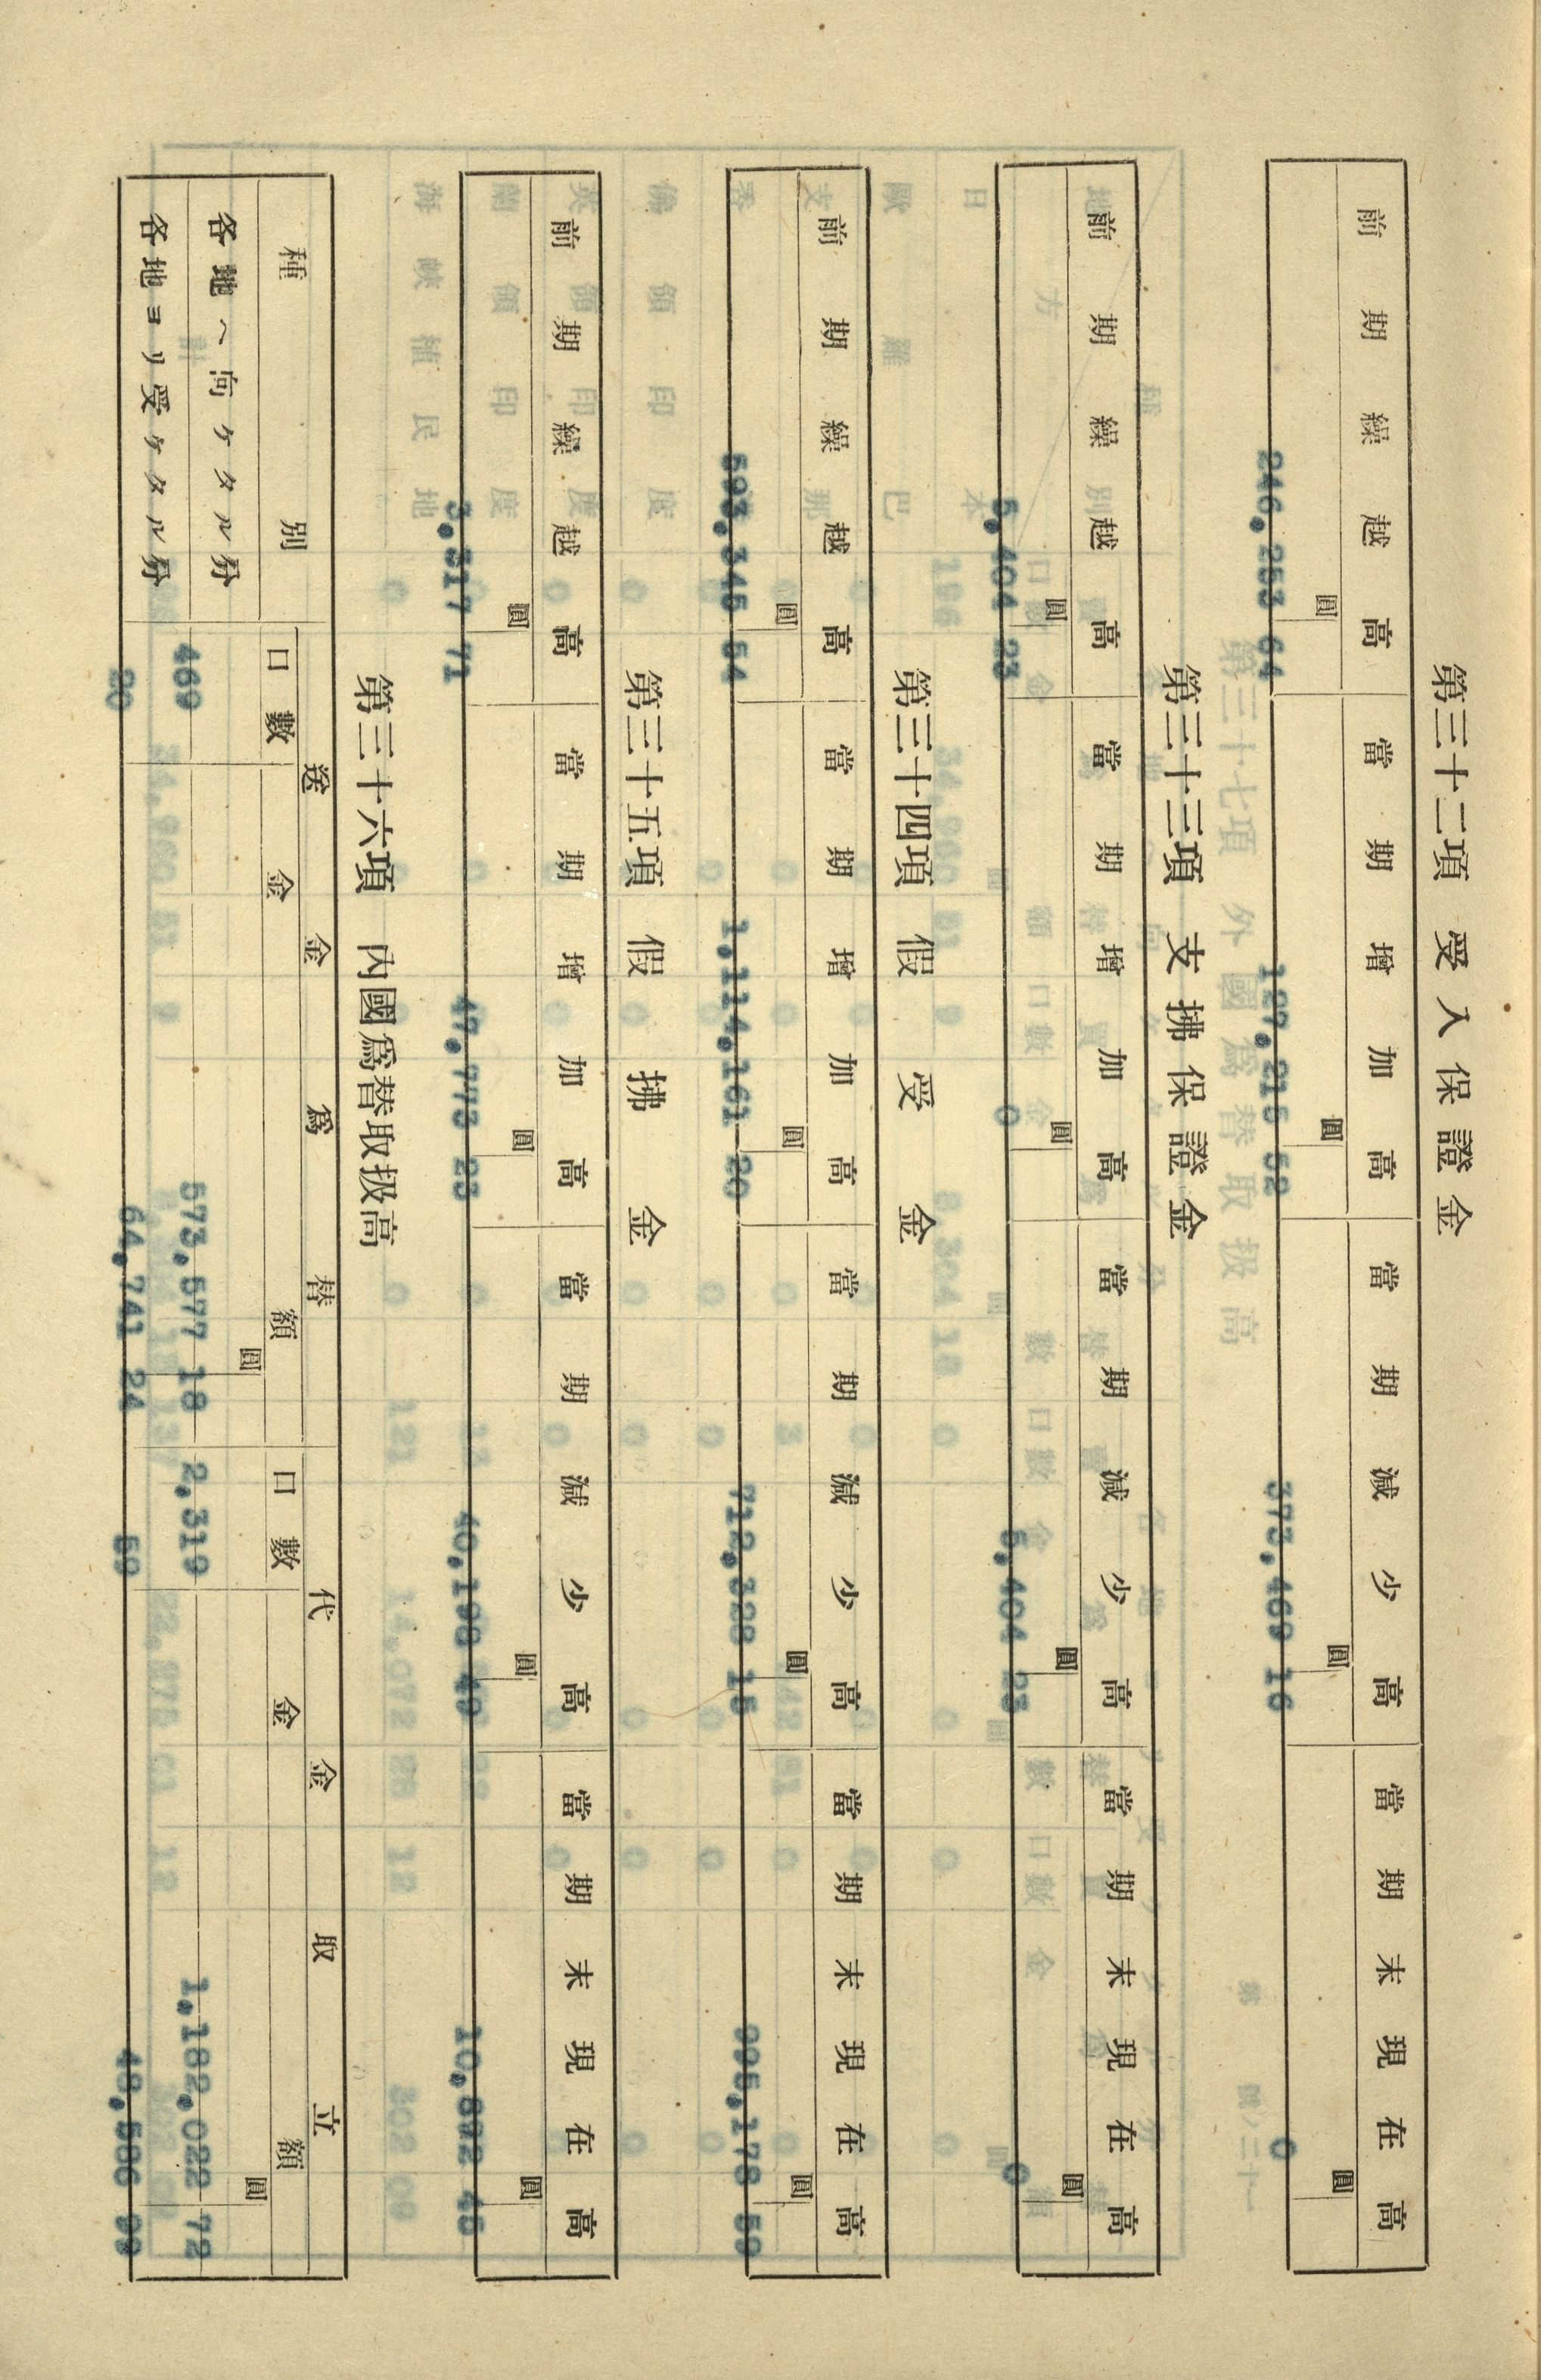 第三十二項 受入保證金
前期繰越高 當期增加高 當期減少高 當期末現在高
圓 圓 圓 圓
246,253 64 127,215 52 373,469 16 0
第三十三項 支拂保證金
前期繰越高 當期增加高 當期減少高 當期末現在高
圓 圓 圓 圓
5,404 23 0 5,404 23 0
第三十四項 假受金
前期繰越高 當期增加高 當期減少高 當期末現在高
圓 圓 圓 圓
593,345 54 1,114,161 20 712,328 15 995,178 59
第三十五項 假拂金
前期繰越高 當期增加高 當期減少高 當期末現在高
圓 圓 圓 圓
3,317 71 47,773 23 40,198 49 10,892 45
第三十六項 內國爲替取扱高
種別 送金爲替 代金取立
口數 金額 口數 金額
圓 圓
各地ヘ向ケタル分 469 573,577 18 2,319 1,182,022 72
各地ヨリ受ケタル分 20 64,741 24 59